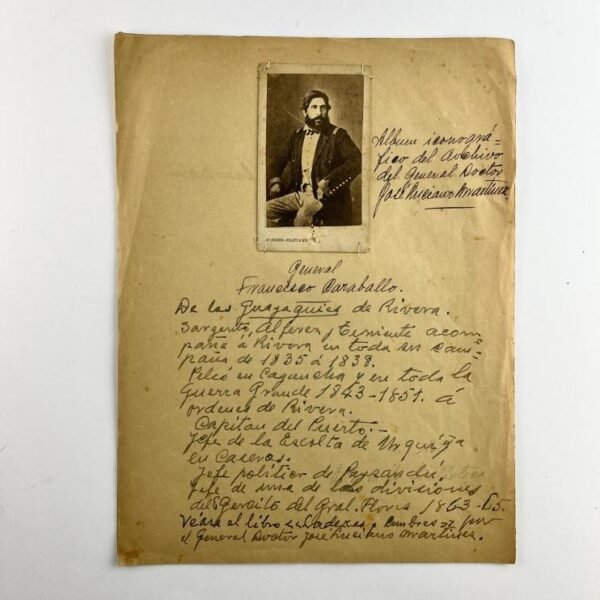 Album iconográ-
fico del Archivo
del General Doctor
José Luciano Martínez.
General
Francisco Caraballo.
De los Guayaquies de Rivera.
Sargento, Alferez y Teniente acom-
paña á Rivera en toda su cam-
paña de 1835 á 1838.
Peleó en Cagancha y en toda la
Guerra Grande 1843-1851. á
ordenes de Rivera.
Capitan del Puerto.-
Jefe de la Escolta de Urquiza
en Caseros.
Jefe político de Paysandú.
Jefe de una de las divisiones
del Ejercito del Gral. Flores 1863-65.
Véase el libro "Laderas y Cumbres" por
el General Doctor José Luciano Martínez.